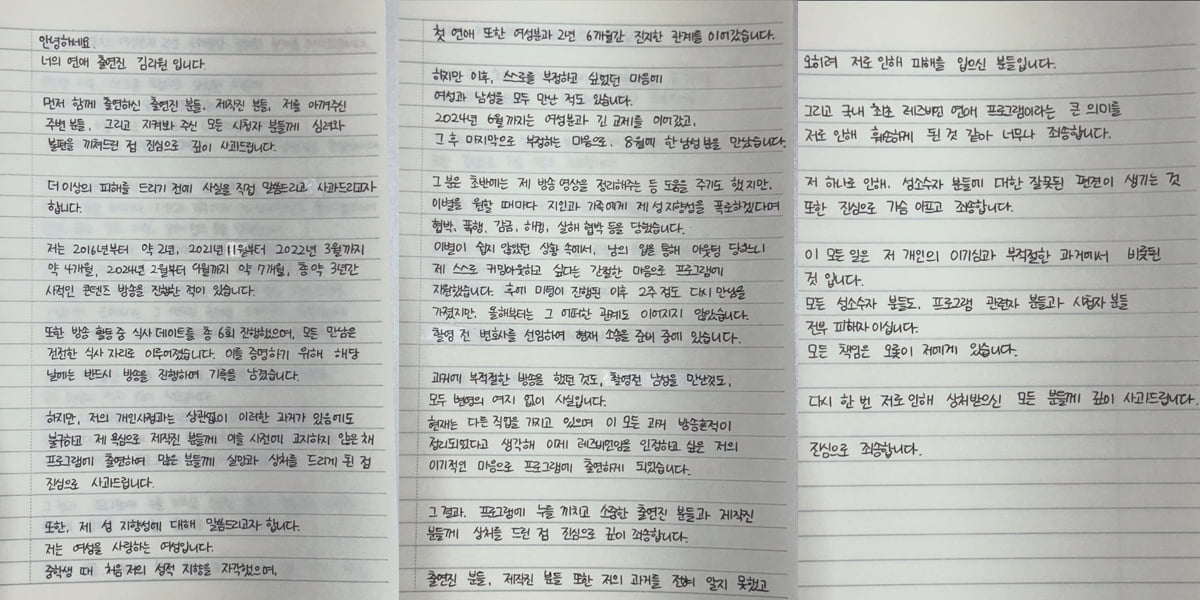 안녕하세요.
너의 연애 출연진 김리원 입니다.
먼저 함께 출연하신 출연진 분들, 제작진 분들, 저를 아껴주신
주변 분들, 그리고 지켜봐 주신 모든 시청자 분들께 심려와
불편을 끼쳐드린 점 진심으로 깊이 사과드립니다.
더 이상의 피해를 드리기 전에 사실을 직접 말씀드리고 사과드리고자
합니다.
저는 2016년부터 약 2년, 2021년 11월부터 2022년 3월까지
약 4개월, 2024년 2월부터 9월까지 약 7개월, 총 약 3년간
사적인 콘텐츠 방송을 진행한 적이 있습니다.
또한 방송 활동 중 식사 데이트를 총 6회 진행했으며, 모든 만남은
건전한 식사 자리로 이루어졌습니다. 이를 증명하기 위해 해당
날에는 반드시 방송을 진행하며 기록을 남겼습니다.
하지만, 저의 개인사정과는 상관없이 이러한 과거가 있음에도
불구하고 제 욕심으로 제작진 분들께 이를 사전에 고지하지 않은 채
프로그램에 출연하여 많은 분들께 실망과 상처를 드리게 된 점
진심으로 사과드립니다.
또한, 제 성 지향성에 대해 말씀드리고자 합니다.
저는 여성을 사랑하는 여성입니다.
중학생 때 처음 저의 성적 지향을 자각했으며,
첫 연애 또한 여성분과 2년 6개월간 진지한 관계를 이어갔습니다.
하지만 이후, 스스로를 부정하고 싶었던 마음에
여성과 남성을 모두 만난 적도 있습니다.
2024년 6월까지는 여성분과 긴 교제를 이어갔고,
그 후 마지막으로 부정하는 마음으로, 8월에 한 남성분을 만났습니다.
그 분은 초반에는 제 방송 영상을 정리해주는 등 도움을 주기도 했지만,
이별을 원할 때마다 지인과 가족에게 제 성지향성을 폭로하겠다며
협박, 폭행, 감금, 해킹, 살해 협박 등을 당했습니다.
이별이 쉽지 않았던 상황 속에서, 남의 입을 통해 아웃팅 당하느니
제 스스로 커밍아웃하고 싶다는 간절한 마음으로 프로그램에
지원했습니다. 후에 미팅이 진행된 이후 2주 정도 다시 만남을
가졌지만, 올해부터는 그 어떠한 관계도 이어지지 않았습니다.
촬영 전 변호사를 선임하여 현재 소송을 준비 중에 있습니다.
과거에 부적절한 방송을 했던 것도, 촬영전 남성을 만난것도,
모두 변명의 여지 없이 사실입니다.
현재는 다른 직업을 가지고 있으며 이 모든 과거 방송흔적이
정리되었다고 생각해 이제 레즈비언임을 인정하고 싶은 저의
이기적인 마음으로 프로그램에 출연하게 되었습니다.
그 결과, 프로그램에 누를 끼치고 소중한 출연진 분들과 제작진
분들께 상처를 드린 점 진심으로 깊이 죄송합니다.
출연진 분들, 제작진 분들 또한 저의 과거를 전혀 알지 못했고
오히려 저로 인해 피해를 입으신 분들입니다.
그리고 국내 최초 레즈비언 연애 프로그램이라는 큰 의미를
저로 인해 훼손하게 된 것 같아 너무나 죄송합니다.
저 하나로 인해, 성소수자 분들에 대한 잘못된 편견이 생기는 것
또한 진심으로 가슴 아프고 죄송합니다.
이 모든 일은 저 개인의 이기심과 부적절한 과거에서 비롯된
것 입니다.
모든 성소수자 분들도, 프로그램 관련자 분들과 시청자 분들
전부 피해자 이십니다.
모든 책임은 오롯이 저에게 있습니다.
다시 한 번 저로 인해 상처받으신 모든 분들께 깊이 사과드립니다.
진심으로 죄송합니다.